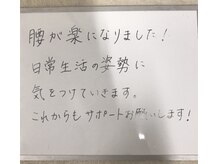 腰が楽になりました！
日常生活の姿勢に
気をつけていきます。
これからもサポートお願いします！